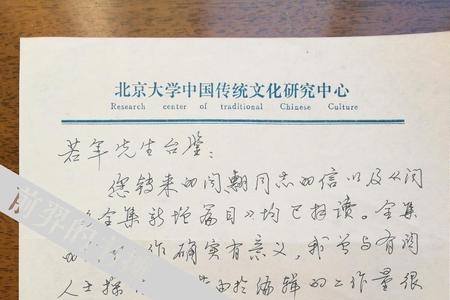 北京大学中国传统文化研究中心
Research center of traditional Chinese Culture
若年先生台鉴：
您转来的闻翱同志的信以及《闻
全集新增篇目》均已拜读。全集
的 作确实有意义，我曾与有关
人士探 由于编辑的工作量很
前羿